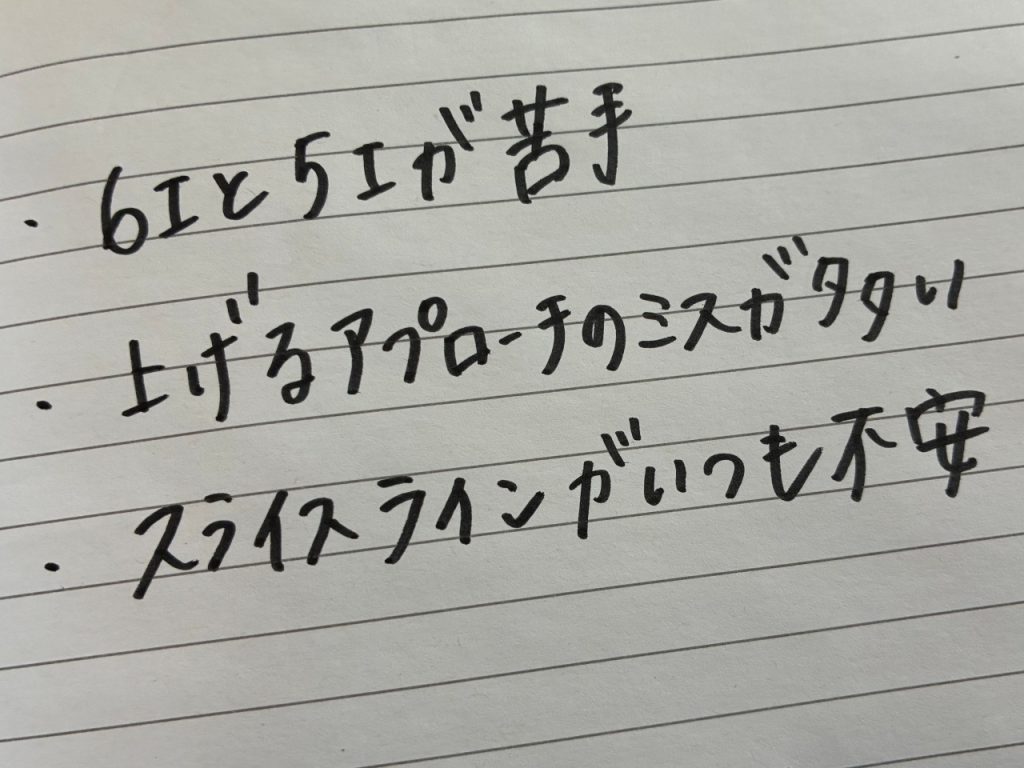 ・6Iと5Iが苦手
・上げるアプローチのミスが多い
・スライスラインがいつも不安